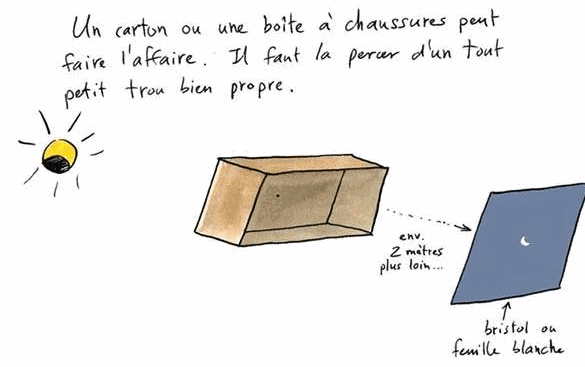 Un carton ou une boîte à chaussures peut
faire l'affaire. Il faut la percer d'un tout
petit trou bien propre.
env.
2 mètres
plus loin...
bristol ou
feuille blanche